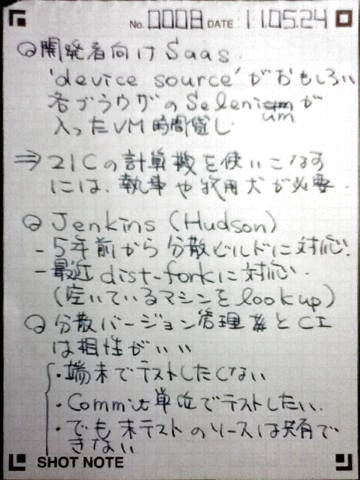 No. 0008 DATE 11.05.24
開発者向けSaas.
'device source' がおもしろい
各ブラウザのSelenium が
um
入ったVM時間貸し
⇒ 21Cの計算機を使いこなす
には、執事や牧用犬が必要.
Jenkins (Hudson)
- 5年前から分散ビルドに対応.
- 最近 dist-forkに対応.
(空いているマシンをlookup)
分散バージョン管理系とCI
は相性がいい
・端末でテストしたくない
・Commit 単位でテストしたい.
・でも未テストのソースは共有で
きない
SHOT NOTE